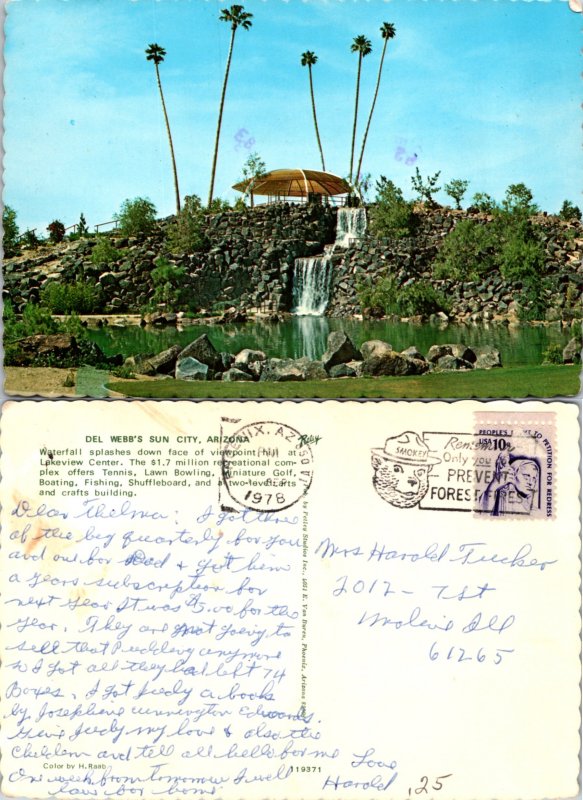 83
DEL WEBB'S SUN CITY, ARIZONA
Waterfall splashes down face of viewpoint hill at
Lakeview Center. The $1.7 million recreational com-
plex offers Tennis, Lawn Bowling, Miniature Golf,
Boating, Fishing, Shuffleboard, and a two-level arts
and crafts building.
PHOENIX, AZ 850
1978
SMOKEY
Remember
Only you can
PREVENT
FOREST FIRES
PEOPLE'S RIGHT TO PETITION FOR REDRESS
USA 10c
Dear Thelma: I got three
of the big quarterly for you
and one for Dad & got them
a years subscription for
next year It was $5.00 for the
year. They are not going to
sell that Pudding anymore
so I got all they had left 74
Boxes. I got Judy a book
by Josephine Cunnington Edwards.
Give Judy my love & also the
Children and tell all hello for me
One week from Tomorrow I will
leave for home
Love
Harold
Mrs Harold Tucker
2012 - 7 st
Moline Ill
61265
by Petley Studios Inc., 4051 E. Van Buren, Phoenix, Arizona
Color by H. Raab
119371
25